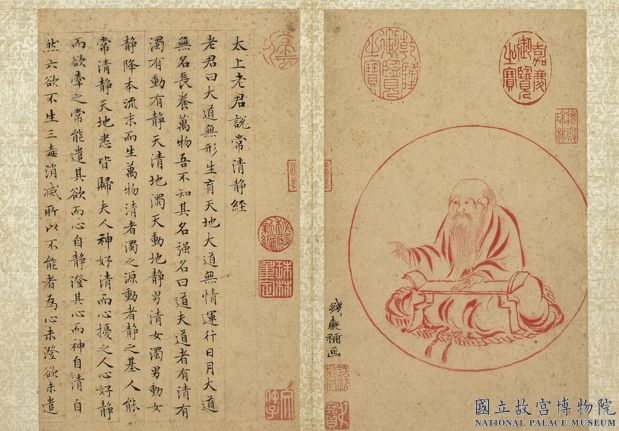 嘉慶御覽之寶
乾隆御覽之寶
太上老君說常清靜經
老君曰大道無形生育天地大道無情運行日月大道
無名長養萬物吾不知其名强名曰道夫道者有清有
濁有動有靜天清地濁天動地靜男清女濁男動女
靜降本流末而生萬物清者濁之源動者靜之基人能
常清靜天地悉皆歸夫人神好清而心擾之人心好靜
而欲牽之常能遣其欲而心自靜澄其心而神自清自
然六欲不生三毒消滅所以不能者為心未澄欲未遣
國立故宮博物院
NATIONAL PALACE MUSEUM